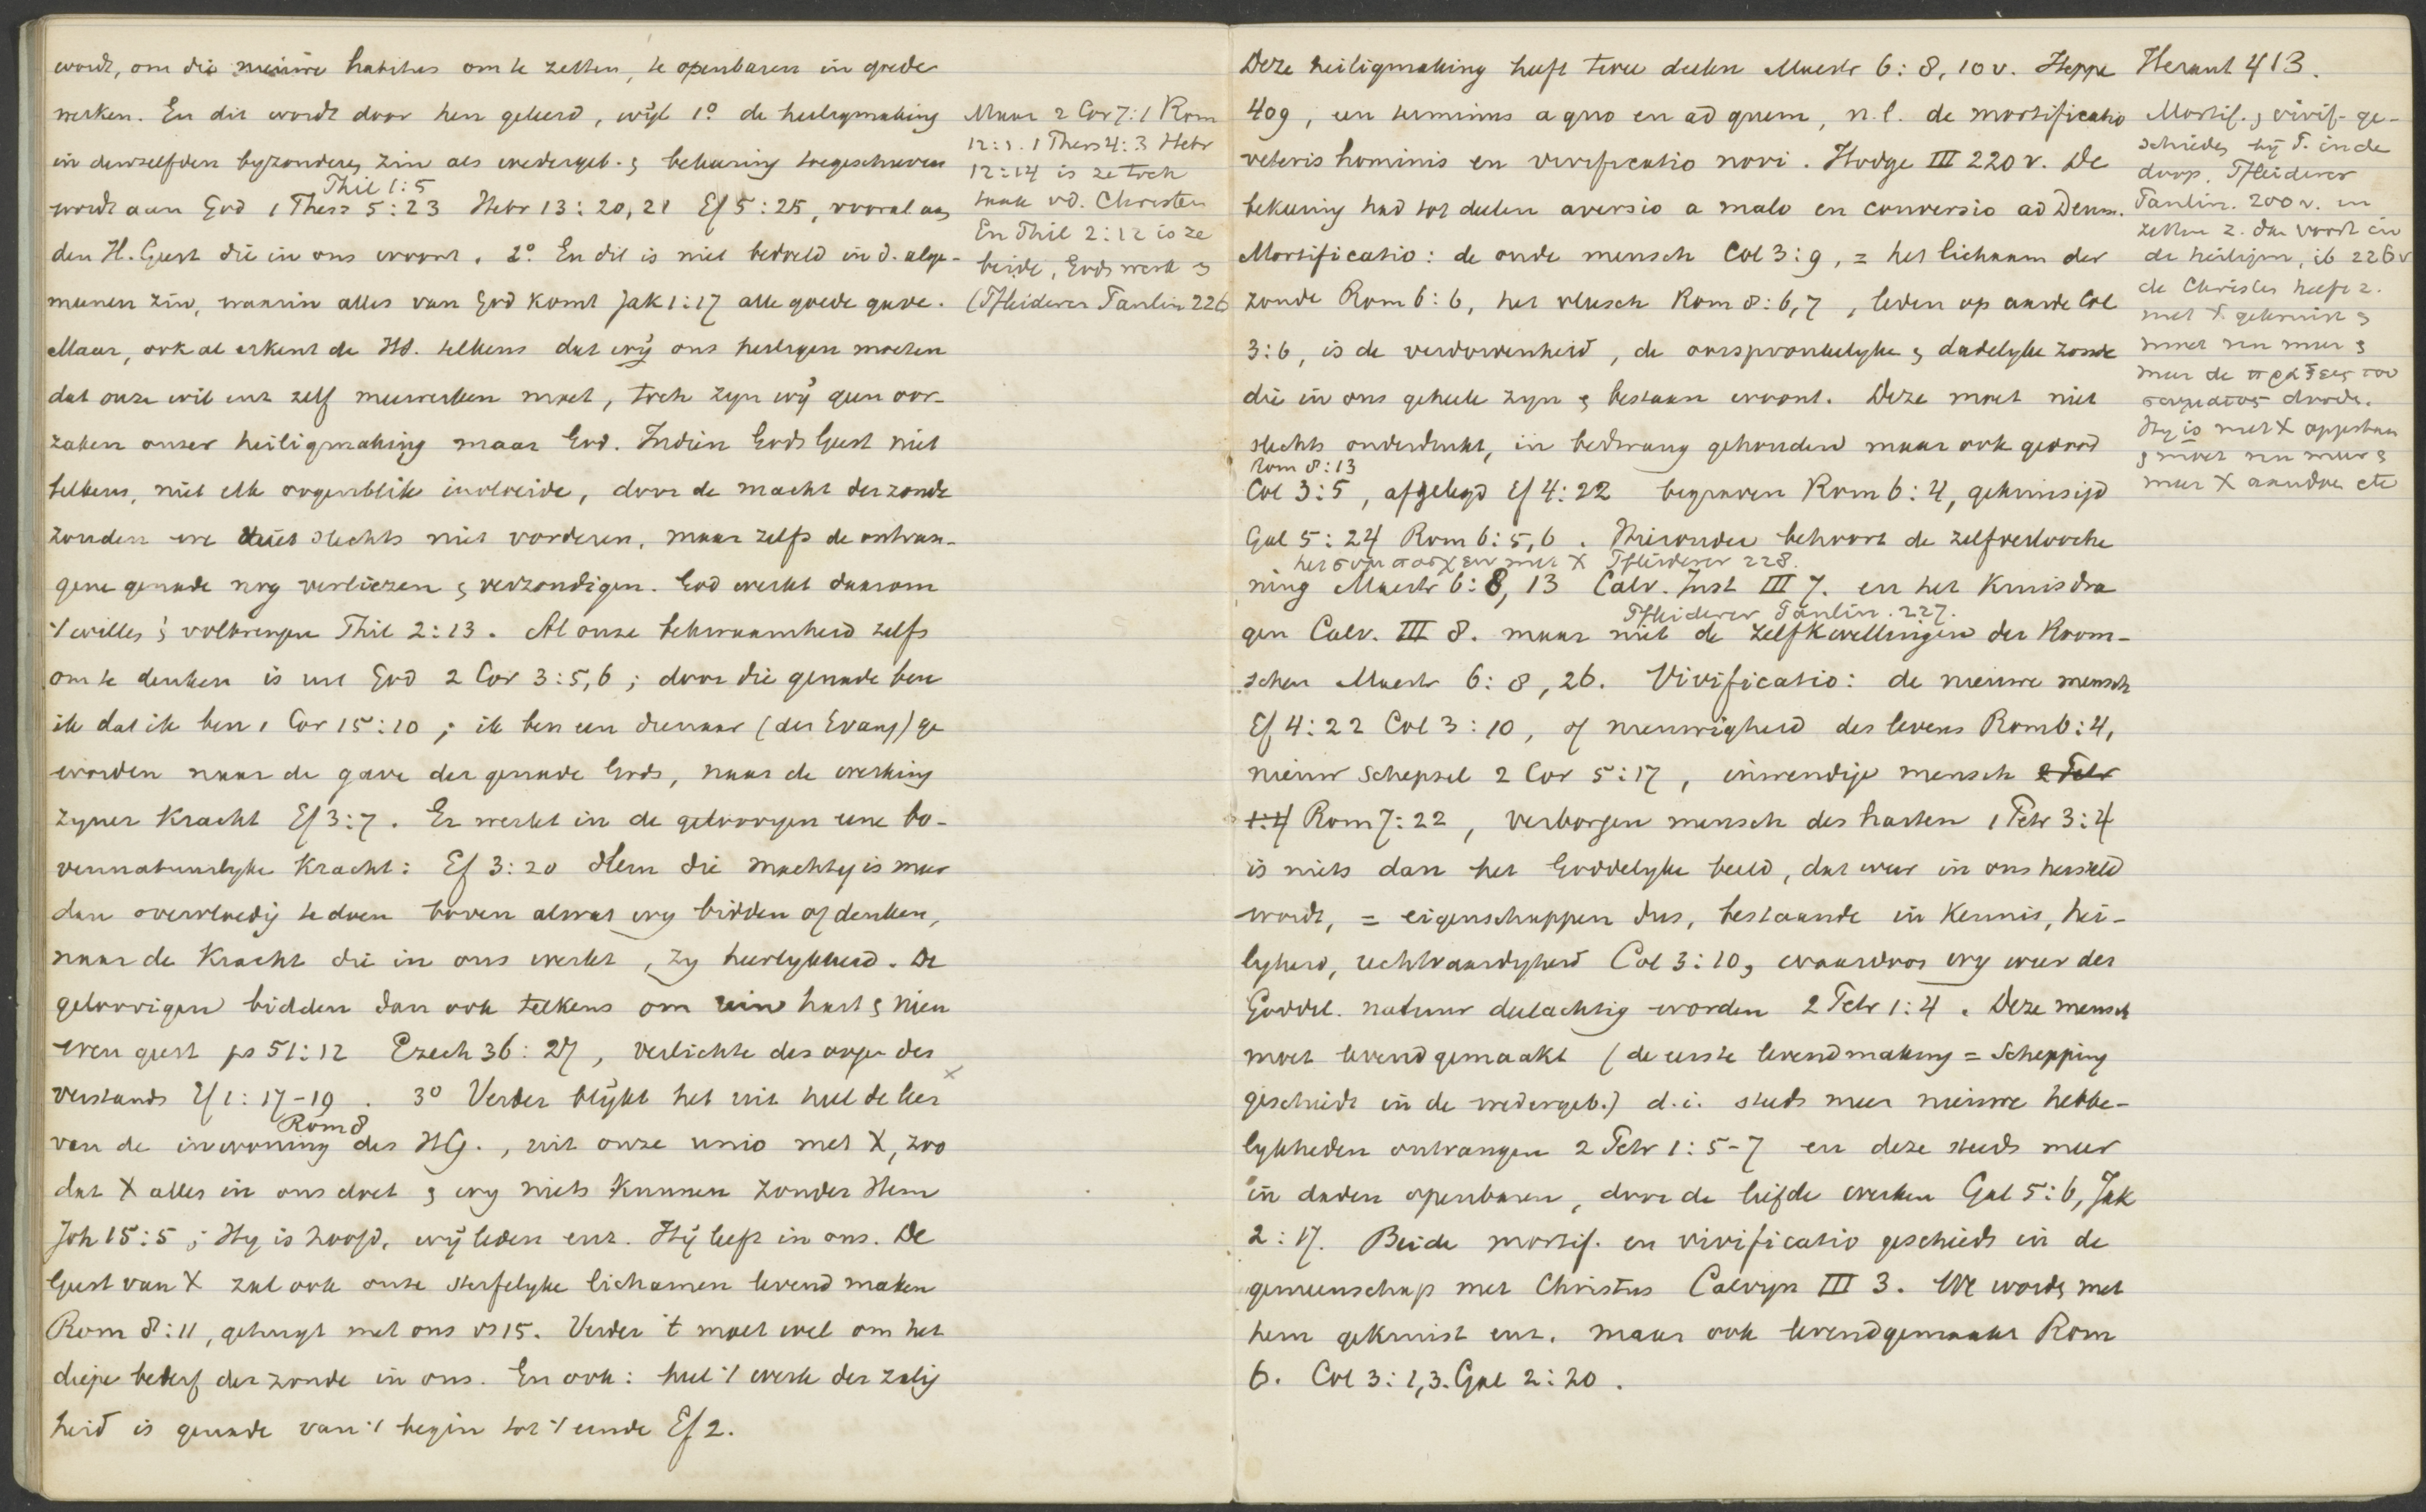 wordt, om die nieuwe habitus om te zetten, te openbaren in goede
werken. En dit wordt door hen geleerd, wijl 1º de heiligmaking
in denzelfden byzonderen zin als wedergeb. & bekeering toegeschreven
Phil 1:5
wordt aan God 1 Thess 5:23 Hebr 13:20,21 Ef 5:25, vooral aan
den H. Geest die in ons woont. 2º En dit is niet bedoeld in d. alge-
meenen zin, waarin alles van God komt Jak 1:17 alle goede gave.
Maar, ook al erkent de HS. telkens dat wij ons heiligen moeten
dat onze wil enz zelf meewerken moet, toch zyn wij geen oor-
zaken onzer heiligmaking maar God. Indien Gods Geest niet
telkens, niet elk oogenblik invloeide, door de macht der zonde
zouden we niet slechts niet vorderen, maar zelfs de ontvan-
gene genade nog verliezen & verzondigen. God werkt daarom
't willen & volbrengen Phil 2:13. Al onze bekwaamheid zelfs
om te denken is uit God 2 Cor 3:5,6; door die genade ben
ik dat ik ben 1 Cor 15:10; ik ben een dienaar (des Evang) ge
worden naar de gave der genade Gods, naar de werking
zyner Kracht Ef 3:7. Er werkt in de geloovigen eene bo-
vennatuurlyke Kracht: Ef 3:20 Hem die machtig is meer
dan overvloedig te doen boven alwat wy bidden of denken,
naar de Kracht die in ons werkt, zy heerlykheid. De
geloovigen bidden dan ook telkens om rein hart & nieu
wen geest ps 51:12 Ezech 36:27, verlichte des oogen des
verstands Ef 1:17-19. 3º Verder blijkt het uit heel de leer
Rom 8
van de inwoning des HG., uit onze unio met X, zoo
dat X alles in ons doet & wy niets kunnen zonder Hem
Joh 15:5; Hy is hoofd, wij leden enz. Hij leeft in ons. De
Geest van X zal ook onze sterfelyke lichamen levend maken
Rom 8:11, getuigt met ons vs 15. Verder 't moet wel om het
diepe bederf der zonde in ons. En ook: heel 't werk der zalig
heid is genade van 't begin tot 't einde Ef 2.
Maar 2 Cor 7:1 Rom
12:1. 1 Thess 4:3 Hebr
12:14 is ze toch
taak vd. Christen
En Phil 2:12 is ze
beide, Gods werk &
(Pfleiderer Paulin 226
Deze heiligmaking heeft twee deelen Mastr 6:8, 10 v. Heppe
409, een terminus a quo en ad quem, n.l. de mortificatio
veteris hominis en vivificatio novi. Hodge III 220 v. De
bekeering had tot deelen aversio a malo en conversio ad Deum.
Mortificatio: de oude mensch Col 3:9, = het lichaam der
zonde Rom 6:6, het vleesch Rom 8:6,7, leden op aarde Col
3:6, is de verdorvenheid, de oorspronkelyke & dadelyke zonde
die in ons geheele zyn & bestaan woont. Deze moet niet
slechts onderdrukt, in bedwang gehouden maar ook gedood
Rom 8:13
Col 3:5, afgelegd Ef 4:22 begraven Rom 6:4, gekruisigd
Gal 5:24 Rom 6:5,6. Hieronder behoort de zelfverlooche
met X Pfleiderer 228.
ning Mastr 6:8, 13 Calv. Inst III 7. en het Kruisdra
Pfleiderer Paulin. 227.
gen Calv. III 8. maar niet de zelfkwellingen der Room-
schen Mastr 6:8, 26. Vivificatio: de nieuwe mensch
Ef 4:22 Col 3:10, of nieuwigheid des levens Rom 6:4,
nieuw schepsel 2 Cor 5:17, inwendige mensch 2 Petr
1:4 Rom 7:22, verborgen mensch des harten 1 Petr 3:4
is niets dan het Goddelyke beeld, dat weer in ons hersteld
wordt, = eigenschappen dus, bestaande in kennis, hei-
ligheid, rechtvaardigheid Col 3:10, waardoor wy weer der
Goddel. natuur deelachtig worden 2 Petr 1:4. Deze mensch
moet levend gemaakt (de eerste levendmaking = Schepping
geschiedt in de wedergeb.) d.i. steeds meer nieuwe hebbe-
lykheden ontvangen 2 Petr 1:5-7 en deze steeds meer
in daden openbaren, door de liefde werken Gal 5:6, Jak
2:17. Beide mortif. en vivificatio geschieds in de
gemeenschap met Christus Calvyn III 3. We worde met
hem gekruist enz. maar ook levendgemaakt Rom
6. Col 3:1,3. Gal 2:20.
Heraut 413.
Mortif. & vivif. ge-
schieden bij P. in de
doop. Pfleiderer
Paulin. 200 v. en
zetten z. dan voort in
de heiligm, ib 226 v
de Christen heeft z.
met X gekruist &
moet nu meer &
meer de πραξεις του
σωματος dooden.
Hy is met X opgestaan
& moet nu meer &
meer X aandoen etc